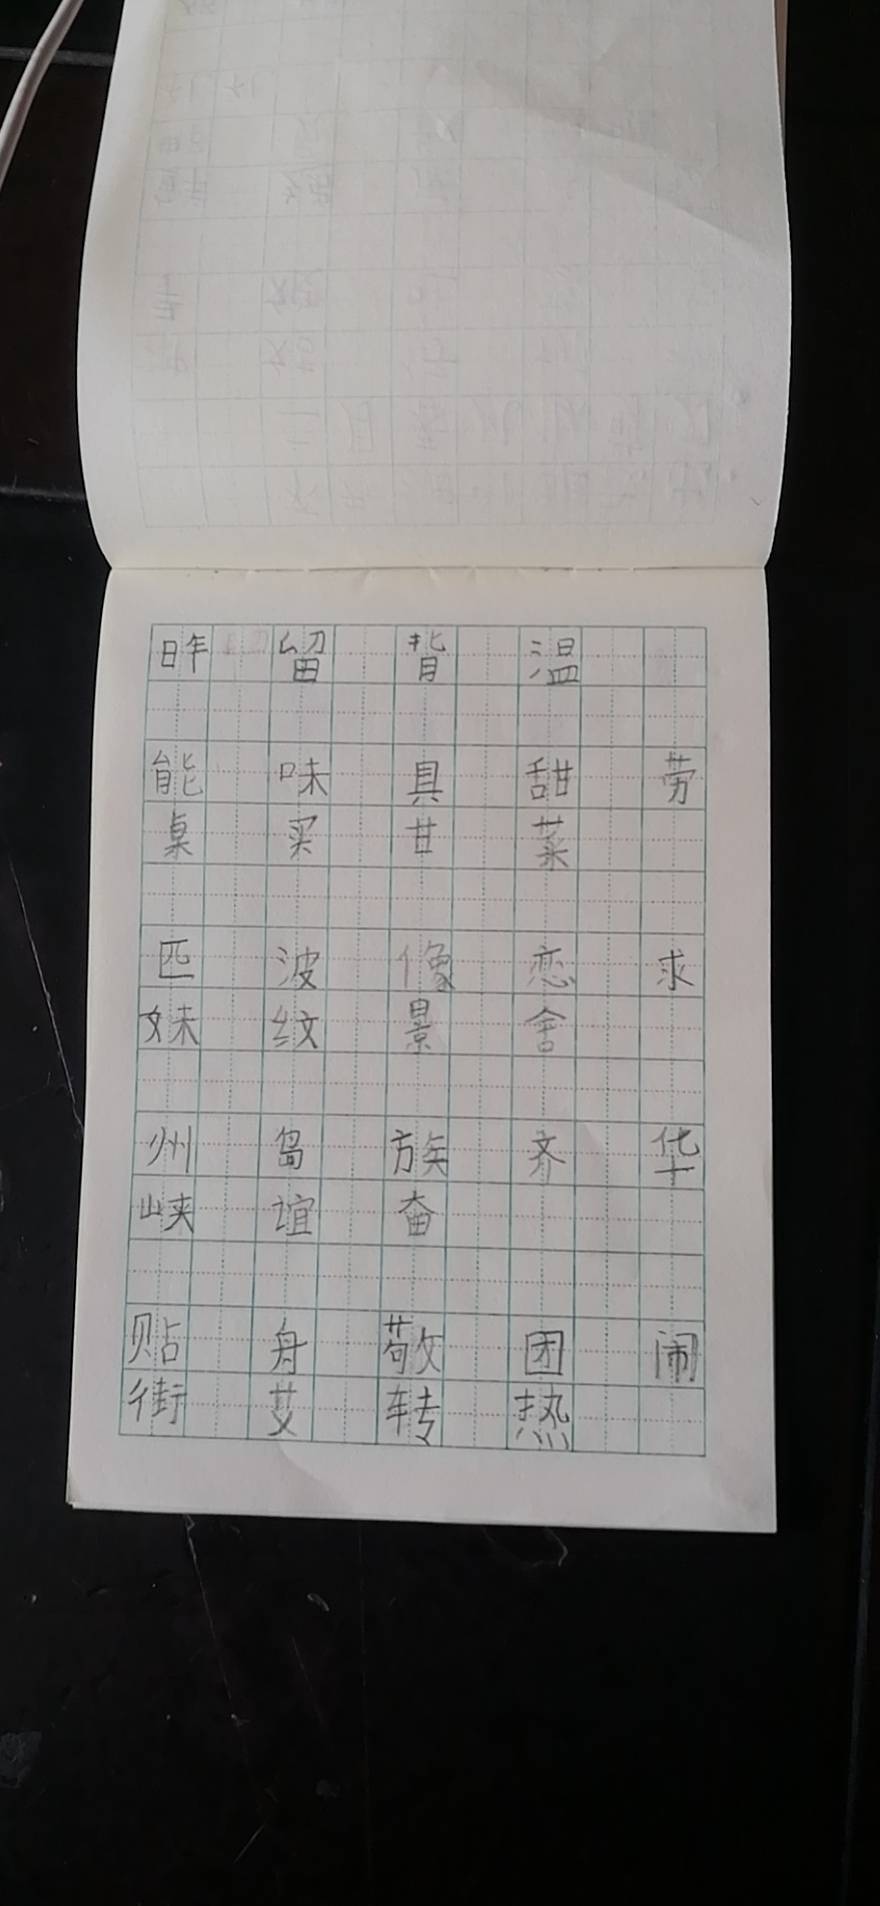 昨 留 背 温
能 味 具 甜 劳
桌 买 甘 菜
匹 波 像 恋 求
妹 纹 景 舍
州 岛 族 齐 华
峡 谊 奋
贴 舟 敬 团 闹
街 艾 转 热